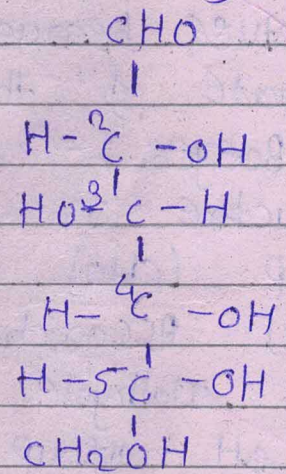 CHO
|
H - 2C - OH
|
HO - 3C - H
|
H - 4C - OH
|
H - 5C - OH
|
CH2OH